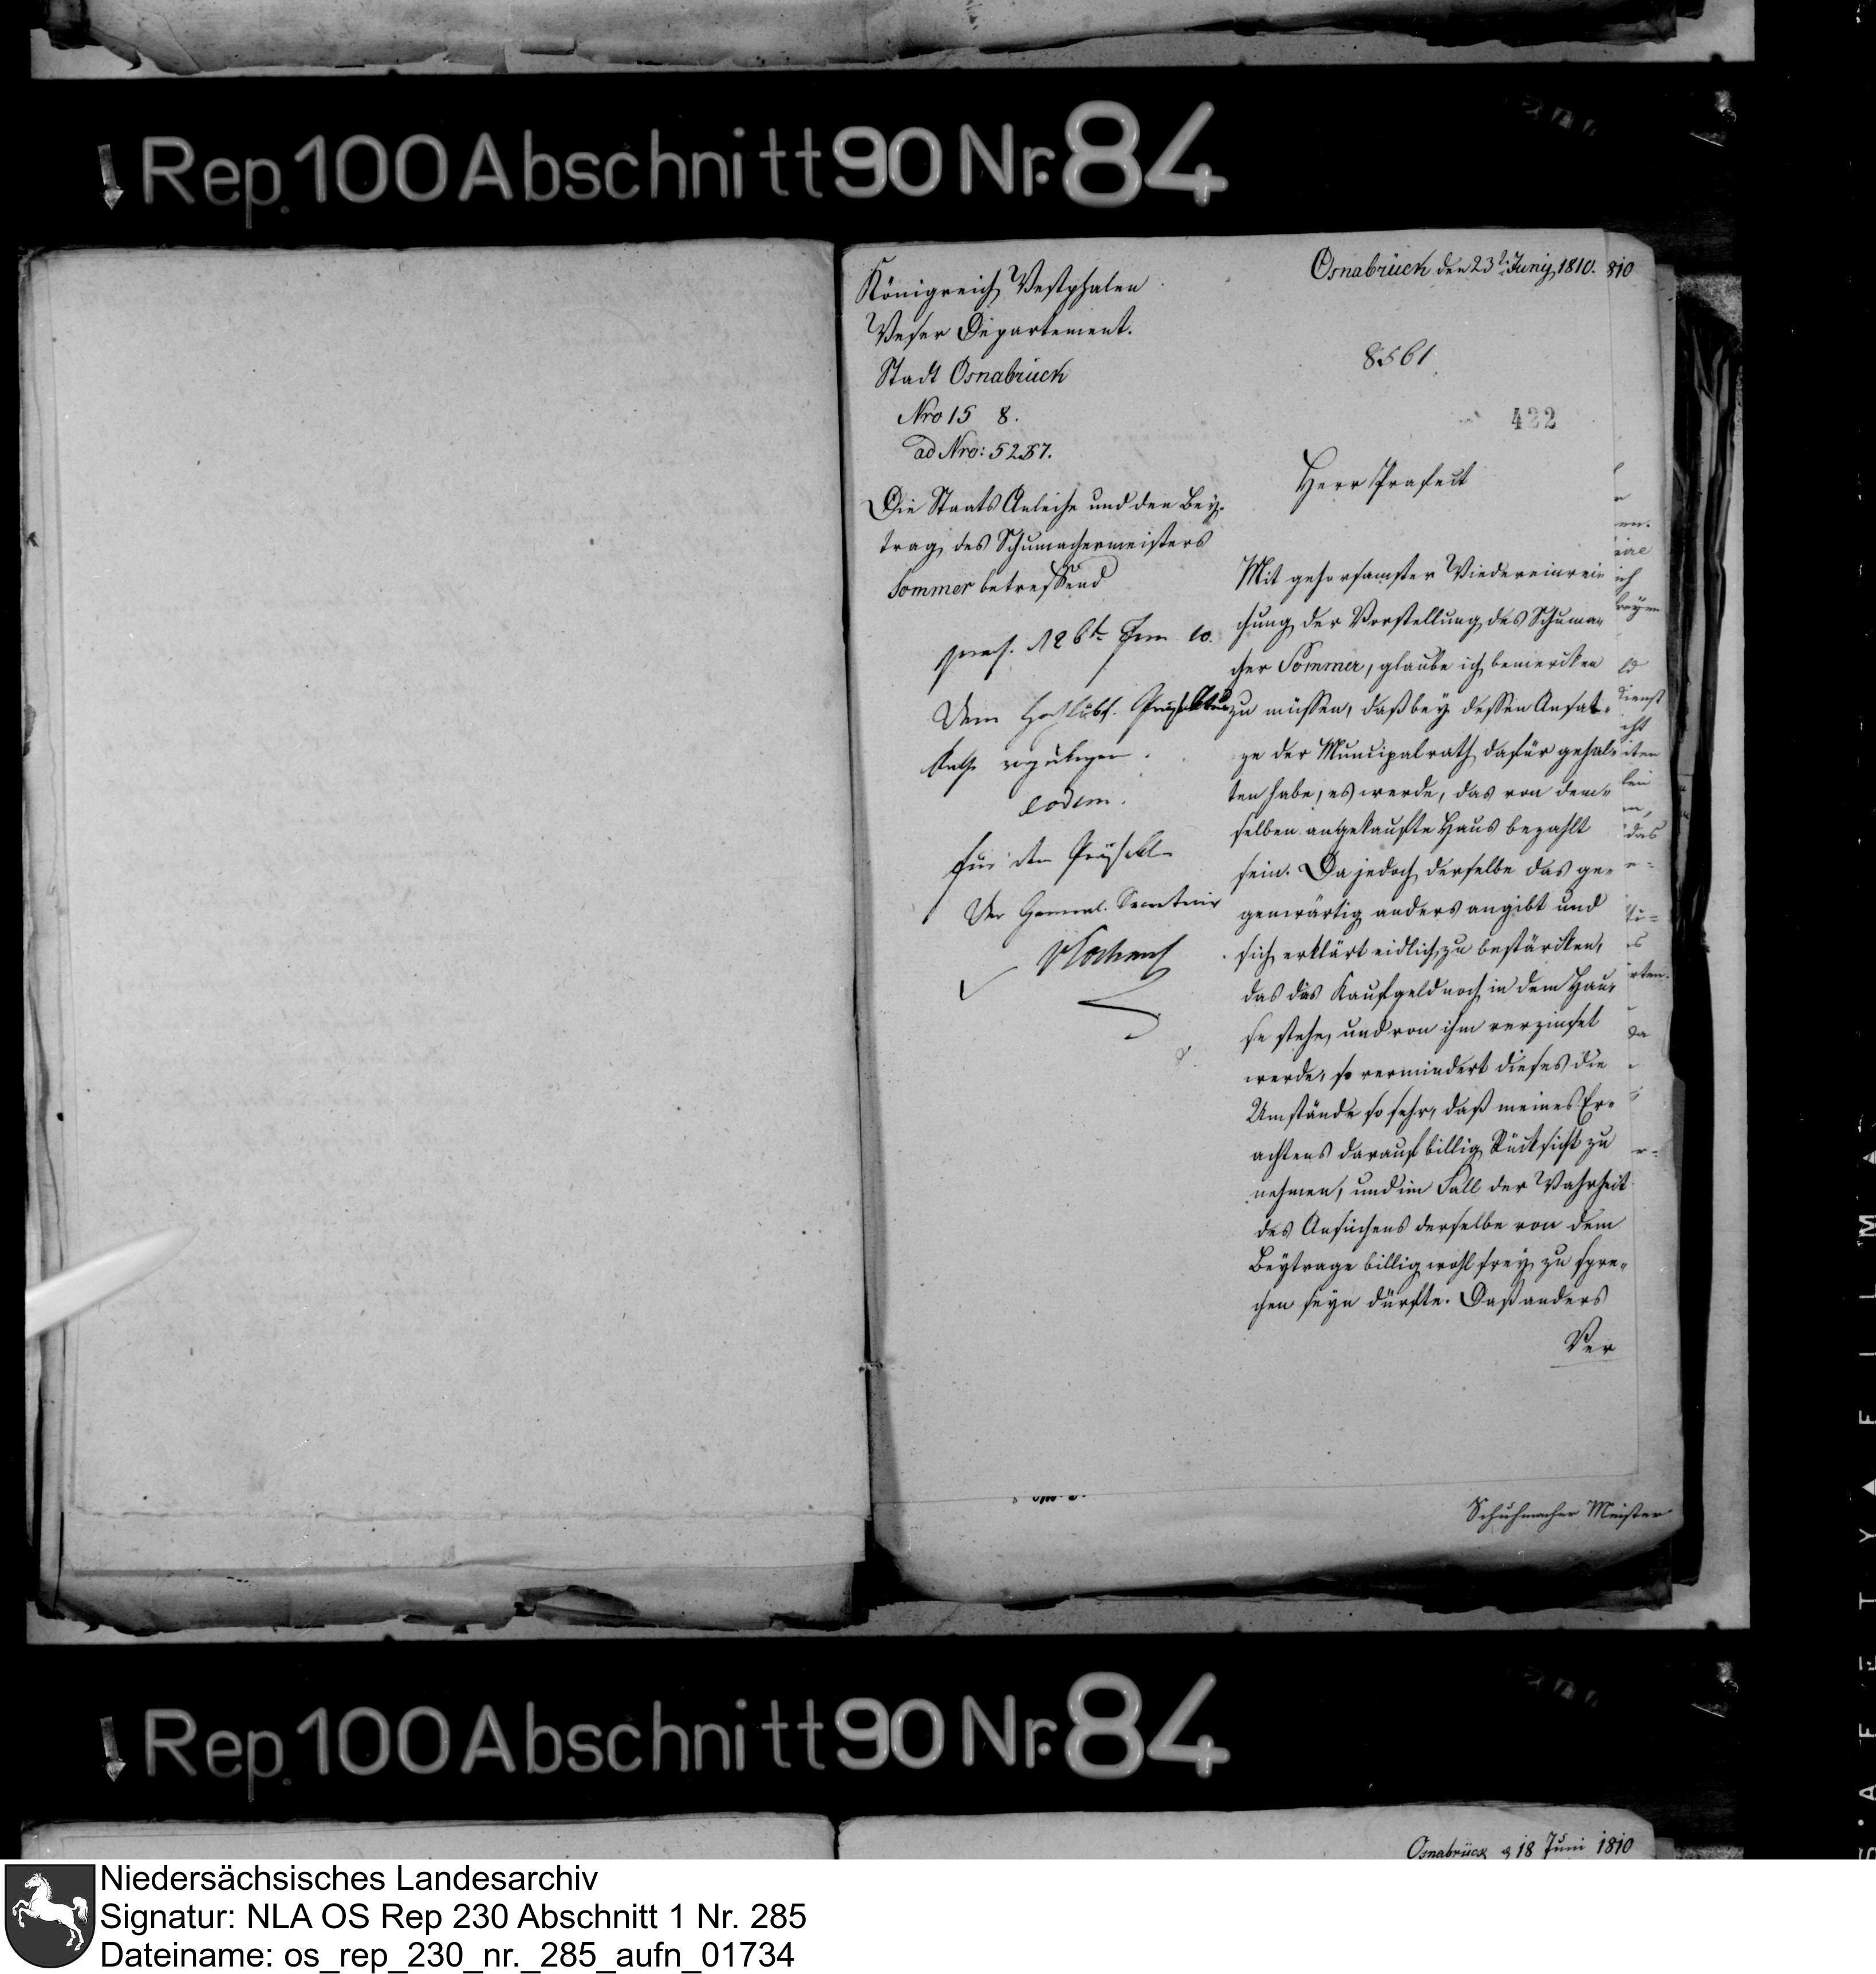 Rep. 100 Abschnitt 90 Nr. 84
Osnabrück den 23t. Juny 1810.
810
Königreich Westphalen
Weser Departement.
Stadt Osnabrück
Nro 15 8.
ad Nro: 5257.
8561
422
Die Staats Anleihe und den Bey-
trag des Schumachermeisters
Sommer betreffend
Herr Prafect
Mit gehorsamster Wiedereinrei-
chung der Vorstellung des Schuma-
cher Sommer, glaube ich bemercken
zu müssen, daß bey dessen Ansat-
ze der Municipalrath dafür gehal-
ten habe, es werde, das von dem-
selben angekaufte Haus bezahlt
sein. Da jedoch derselbe das ge-
genwärtig anders angibt und
sich erklärt eidlich zu bestärcken,
das das Kaufgeld noch in dem Hau-
se stehe, und von ihm verzinset
werde, so vermindert dieses die
Umstände so sehr, daß meines Er-
achtens darauf billig Rücksicht zu
nehmen, und im Fall der Wahrheit
des Ansuchens derselbe von dem
Beytrage billig wohl frey zu spre-
chen seyn dürfte. Daß anders
Ver
praes. 26t Jun 10.
Dem Hochlöbl. Präfektur
Rathe vorzulegen.
eodem.
für den Präfekt
Der General. Secretair
Schuhmacher Meister
Rep. 100 Abschnitt 90 Nr. 84
Osnabrück d 18 Juni 1810
Niedersächsisches Landesarchiv
Signatur: NLA OS Rep 230 Abschnitt 1 Nr. 285
Dateiname: os_rep_230_nr._285_aufn_01734